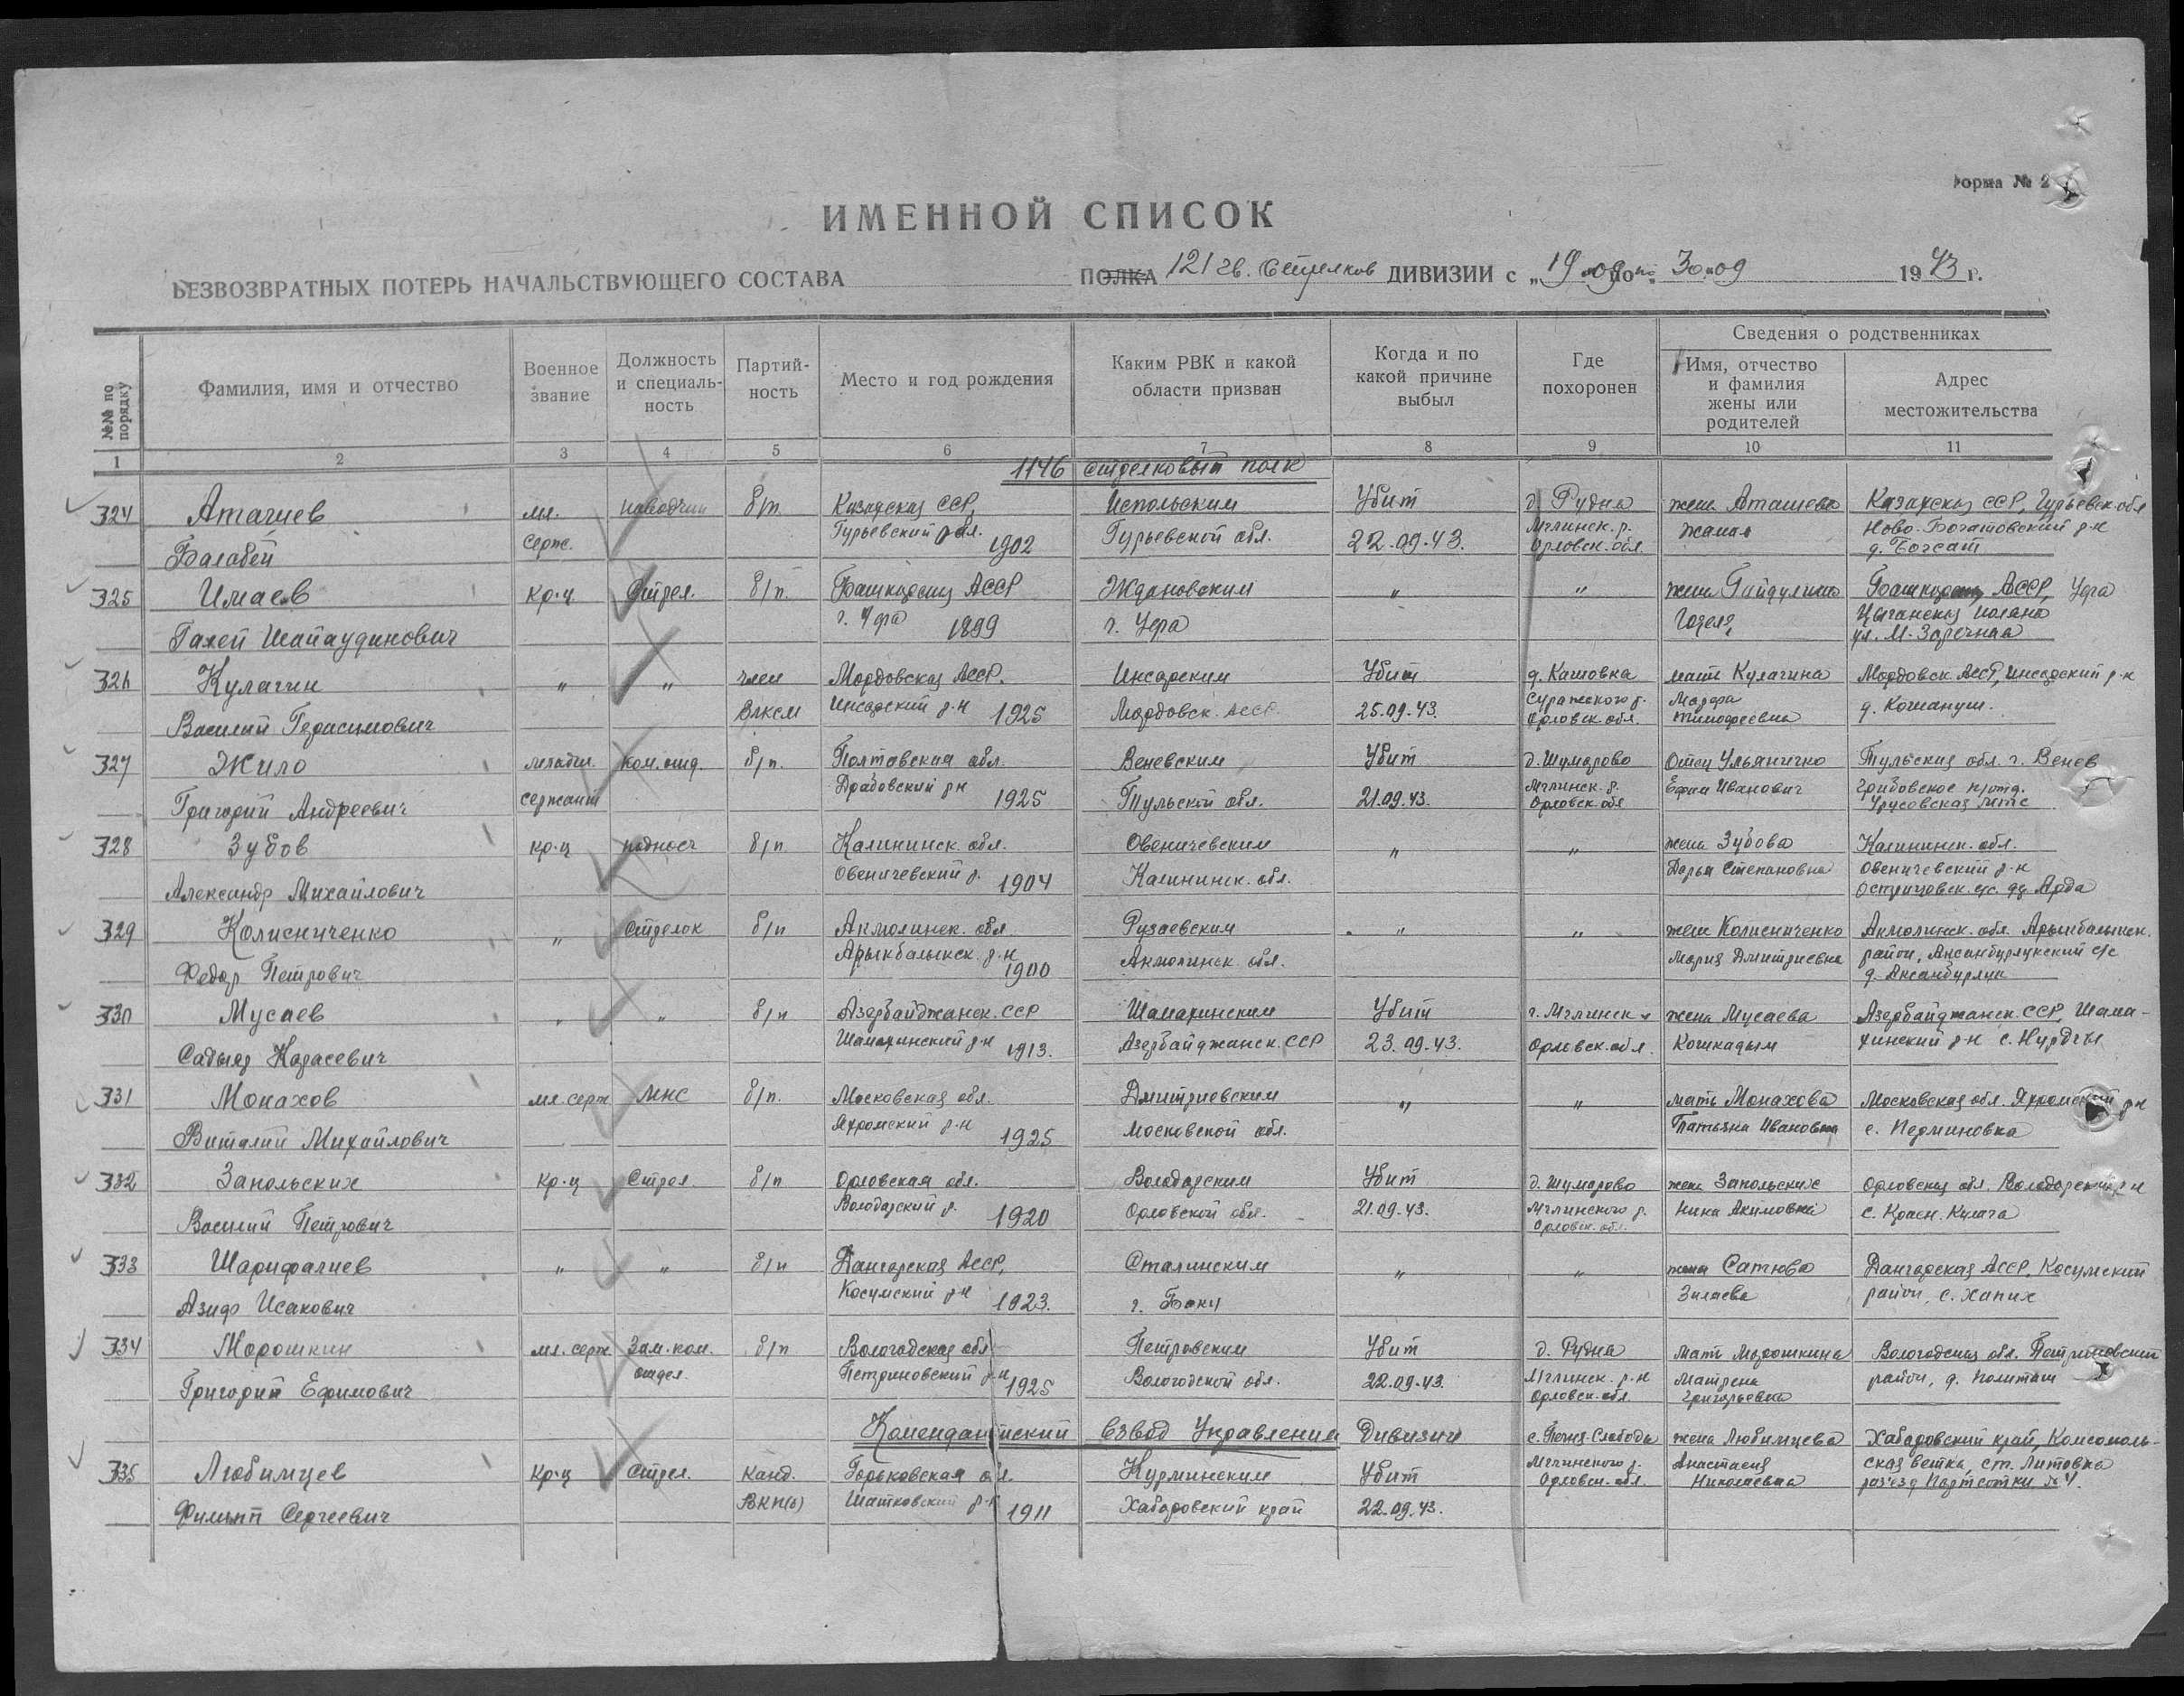 Форма № 2
ИМЕННОЙ СПИСОК
БЕЗВОЗВРАТНЫХ ПОТЕРЬ НАЧАЛЬСТВУЮЩЕГО СОСТАВА ПОЛКА 121 гв. Стрелков ДИВИЗИИ с „19-09 по 30-09 1943 г.
№№ по порядку
Фамилия, имя и отчество
Военное звание
Должность и специаль-ность
Партий-ность
Место и год рождения
Каким РВК и какой области призван
Когда и по какой причине выбыл
Где похоронен
Сведения о родственниках
Имя, отчество и фамилия жены или родителей
Адрес местожительства
1 2 3 4 5 6 7 8 9 10 11
1146 стрелковый полк
324 Атагиев мл. наводчик б/п Казахская ССР, Испольским Убит д. Рудня жена Аташева Казахская ССР, Гурьевск. обл
Балабей Серж. Гурьевский обл. 1902 Гурьевской обл. 22.09.43. Мглинск. р. Орловск. обл. Жамал Ново-Богатовский р-н
325 Имаев кр-ц Стрел. б/п. Башкирская АССР Ждановским „ „ жена Гайдулина Башкирская АССР, Уфа
Галей Шайаудинович г. Уфа 1899 г. Уфа Цыганская поляна
ул. М-Заречная
326 Кулагин „ „ член Мордовская АССР. Инсарским Убит д. Кашовка мать Кулагина Мордовск АССР, Инсарский р-н
Василий Герасимович ВЛКСМ Инсарский р-н 1925 Мордовск. АССР 25.09.43. Суражского р. Орловск обл. Марфа Тимофеевна д. Кошануш.
327 Жило младш. Ком. отд. б/п. Полтавская обл. Веневским Убит д. Шумарово Отец Ульяничко Тульская обл. г. Венев
Григорий Андреевич сержант Драбовский рн 1925 Тульской обл. 21.09.43. Мглинск. р. Орловск. обл Ефим Иванович
328 Зубов кр-ц поднос б/п Калининск. обл. Овеничевским „ „ жена Зубова Калининск. обл.
Александр Михайлович Овеничевский р. 1904 Калининск. обл. Дарья Степановна Овеничевский р-н
329 Колисниченко „ Стрелок б/п Акмолинск. обл Рузаевским „ „ жена Колисниченко Акмолинск. обл. Арыкбалыкск.
Федор Петрович Арыкбалыкск. р-н 1900 Акмолинск обл. Мария Дмитриевна район, Аксанбурлукский с/с
д. Аксанбурлук
330 Мусаев „ „ б/п Азербайджанск. ССР Шамахинским Убит г. Мглинск жена Мусаева Азербайджанск. ССР, Шама-
Садыяр Карасевич Шамахинский р-н 1913. Азербайджанск. ССР 23.09.43. Орловск. обл. Кошкадым хинский р-н с.
331 Монахов мл. серж б/п. Московская обл. Дмитриевским „ „ мать Монахова Московская обл. Яхромский р-н
Виталий Михайлович Яхромский р-н 1925 Московской обл. Татьяна Ивановна с. Перминовка
332 Запольских кр-ц Стрел б/п Орловская обл. Володарским Убит д. Шумарово жена Запольских Орловская обл. Володарский р-н
Василий Петрович Володарский р. 1920 Орловской обл. 21.09.43. Мглинского р. Орловск. обл. Нина Акимовна с. Красн. Кулага
333 Шарифалиев „ „ б/п Дангарская АССР, Сталинским „ „ жена Сатюва Дангарская АССР, Косумский
Азиф Исакович Косумский р-н 1923. г. Баку Зилаева район, с. Хапих
334 Морошкин мл. серж Зам. ком. б/п Вологодская обл Петровским Убит д. Рудня мать Морошкина Вологодская обл. Петриновский
Григорий Ефимович отдел. Петриновский р-н 1925 Вологодской обл. 22.09.43. Мглинск. р-н Орловск. обл. Матрена Григорьевна район, д.
Комендантский взвод Управления Дивизии
335 Любимцев Кр-ц Стрел. Канд. Горьковская обл. Курминским Убит жена Любимцева Хабаровский край, Комсомоль-
Филипп Сергеевич ВКП(б) Шатковский р-н 1911 Хабаровский край 22.09.43. Мглинского р. Орловск. обл. Анастасия Николаевна ская ветка, ст. Литовко